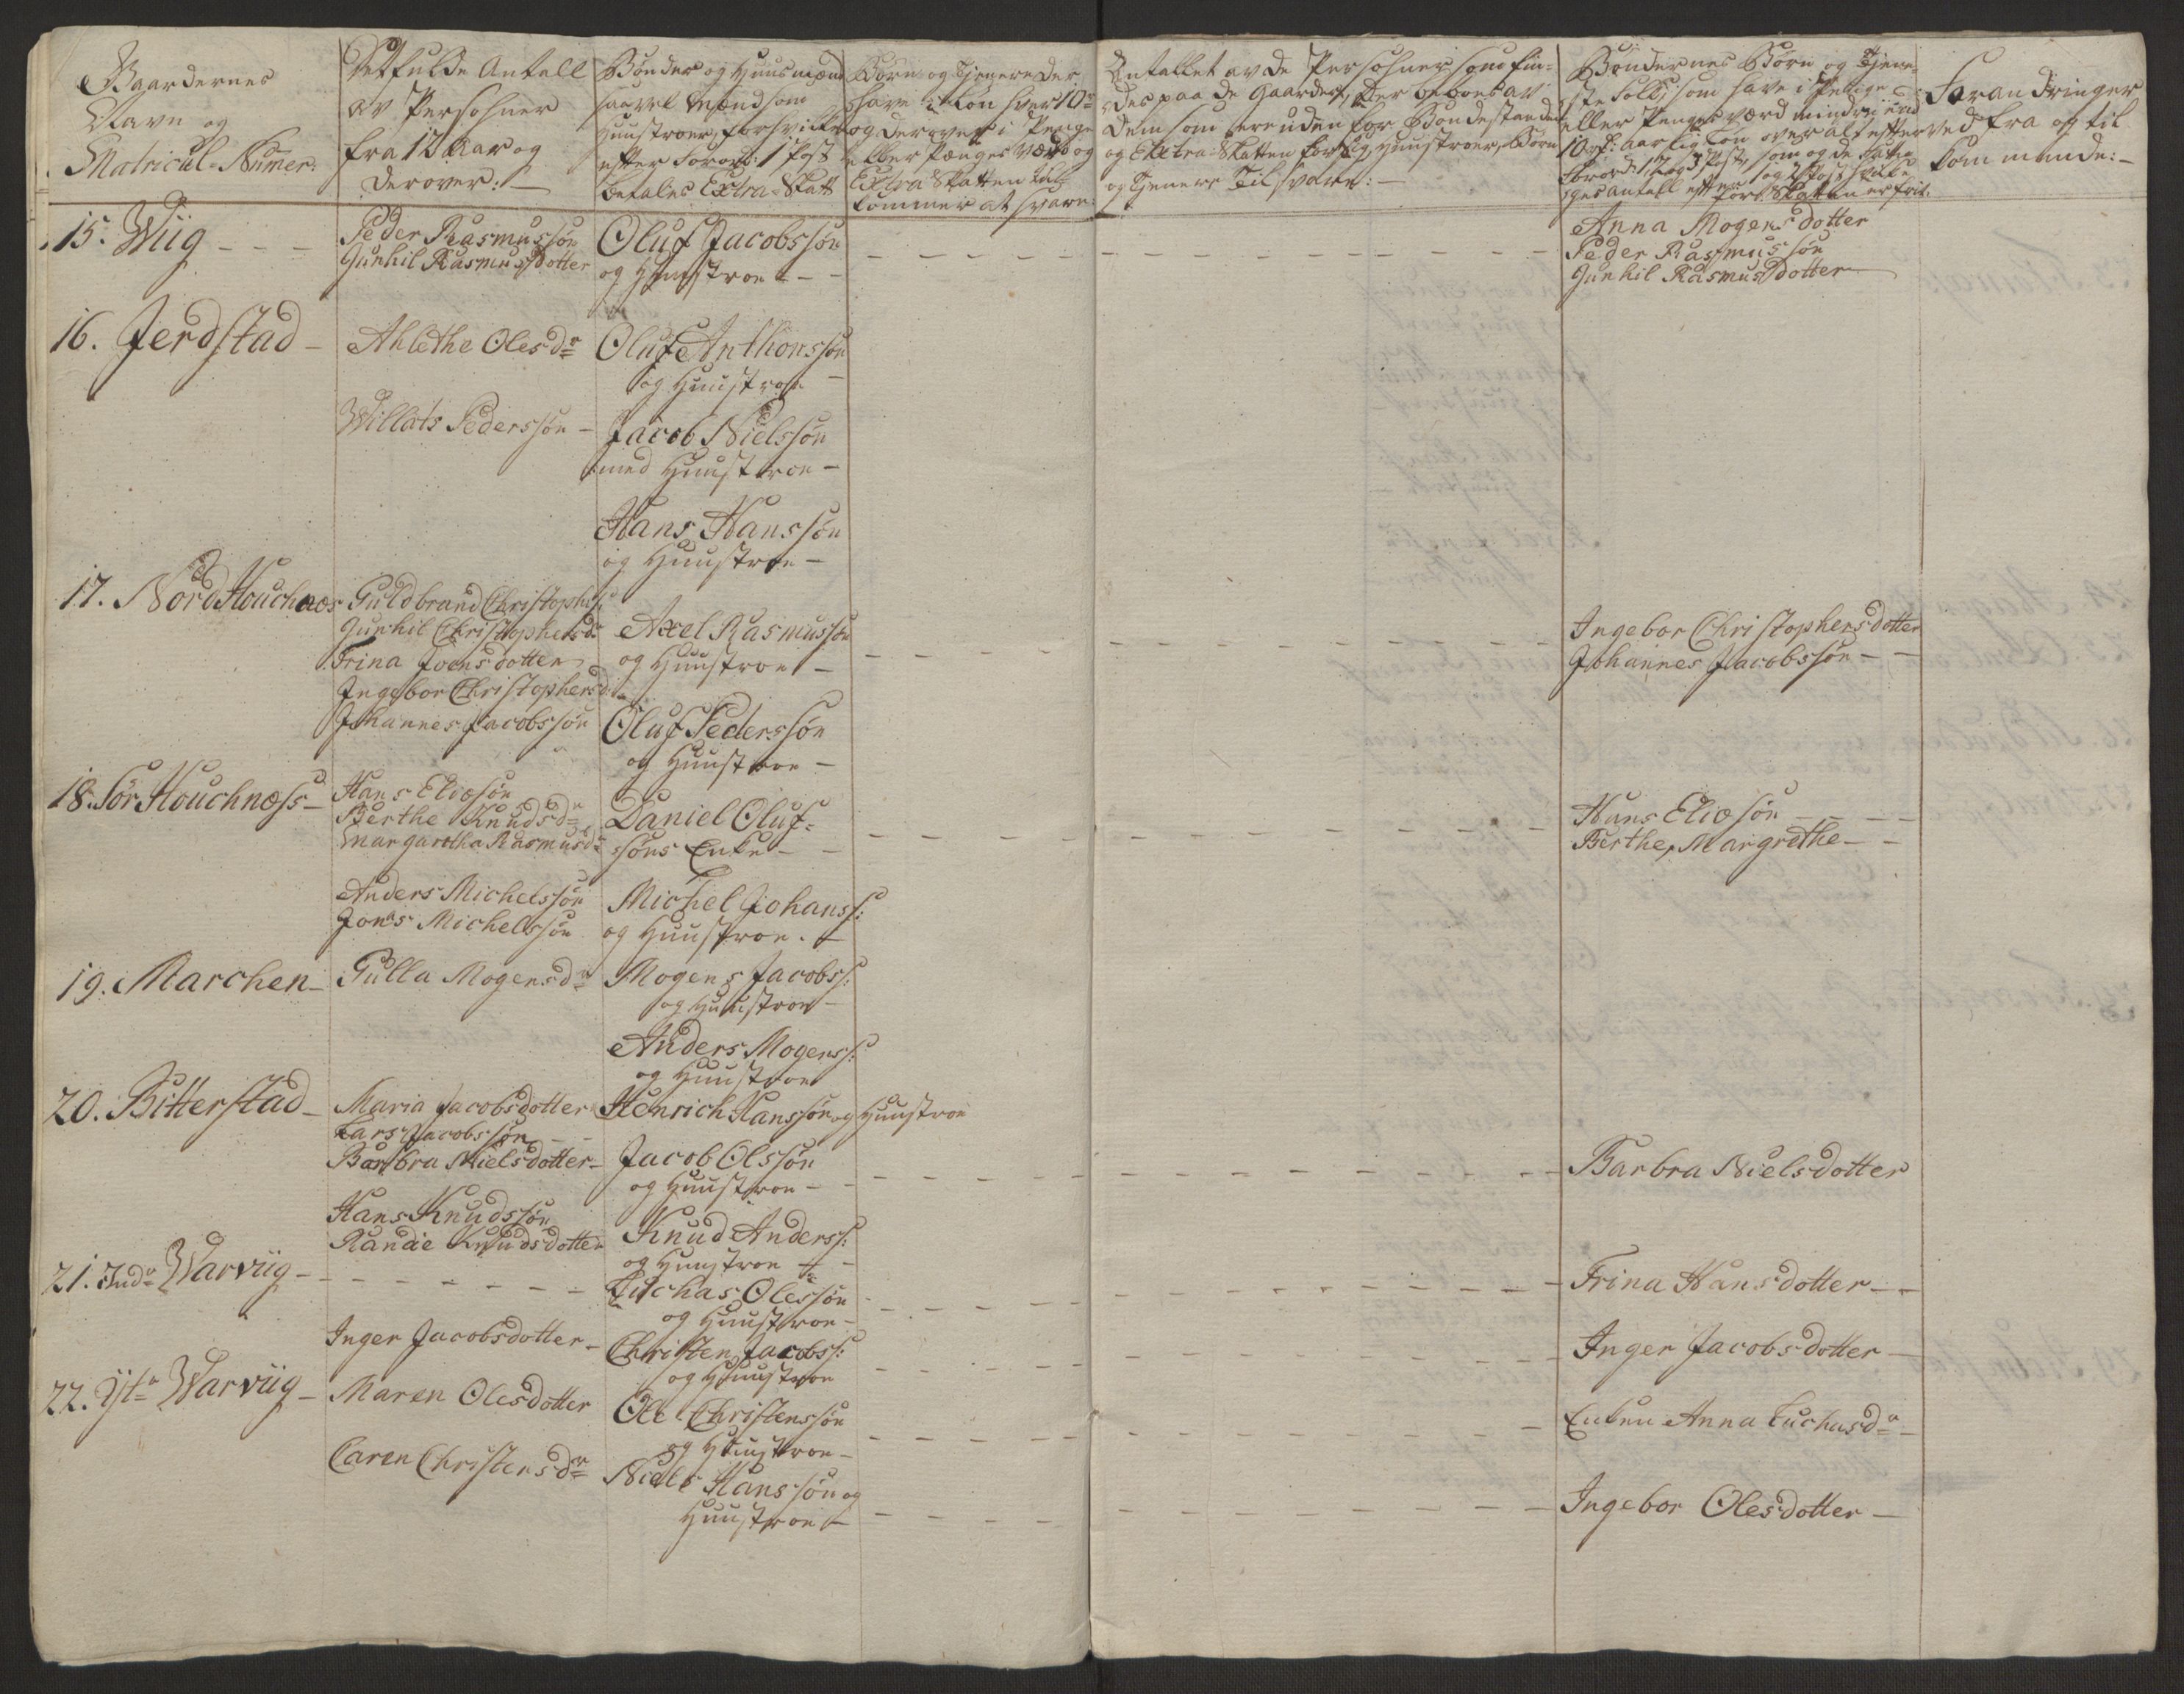 Gaardernes
Navn og
Matricul-Numer:
Antall
av Persohner
fra 12 Aar og
derover: —
Bønder og Huusmænd
saavel Mænd som
Huustroer, for hvilke
efter Forord: 1 Post
betales Extra-Skatt
Børn og Tjenere der
have i Løn hver 10
og derover i Penge
eller Penges Værd og
Extra Skatten til-
kommer at svare:
Antallet av de Persohner som fin-
des paa de Gaarder, der beboes av
dem som ere uden for Bondestanden
og Extra-Skatten for sig, Huustroer, Børn
og Tjenere Tilsvare: —
Bøndernes Børn og Tjene-
ste Folk, som have i Penge
eller Penges værd mindre end
10 aarlig Løn
Forandringer
ved fra og til
kommende: —
15. Wiig - - -
Peder Rasmussøn
Gunhil Rasmusdotter
Oluf Jacobssøn
og Huustroe - -
Anna Mogensdotter
Peder Rasmussøn
Gunhil Rasmusdotter
16. Jerdstad -
Ahlethe Olesdr
Oluf Anthonssøn
og Huustroe
Willats Pederssøn -
Jacob Nielssøn
med Huustroe -
Hans Hanssøn
og Huustroe -
17. Nord Houchnæs
Guldbrand Christophs:
Gunhil Christophersdr
Trina Joensdotter
Ingebor Christophersd
Johannes Jacobssøn
Axel Rasmussøn
og Huustroe -
Oluf Pederssøn
og Huustroe -
Ingebor Christophersdotter
Johannes Jacobssøn - -
18. Sør Houchnæss -
Hans Eliæsøn
Berthe Knudsdr
Margaretha Rasmusdr
Daniel Oluf-
søns Enke - -
Hans Eliæsøn - - -
Berthe, Margrethe - -
Anders Michelssøn
Jonas Michelssøn
Michel Johanss:
og Huustroe. -
19. Marchen -
Gulla Mogensdr
Mogens Jacobss:
og Huustroe -
Anders Mogenss:
og Huustroe
20. Bitterstad -
Maria Jacobsdotter
Lars Jacobssøn - -
Barbra Nielsdotter -
Henrich Hanssøn og Huustroe
Jacob Olssøn
og Huustroe - -
Barbra Nielsdotter
Hans Knudssøn
Randie Knudsdotter
Knud Anderss:
og Huustroe -
21. Indr Warviig -
Luchas Olessøn
og Huustroe -
Trina Hansdotter - -
Inger Jacobsdotter -
Christen Jacobss:
og Huustroe
Inger Jacobsdotter -
22. Ytr Warviig -
Maren Olesdotter
Ole Christenssøn
og Huustroe -
Enken Anna Luchasdr -
Caren Christensdr
Niels Hanssøn og
Huustroe -
Ingebor Olesdotter -